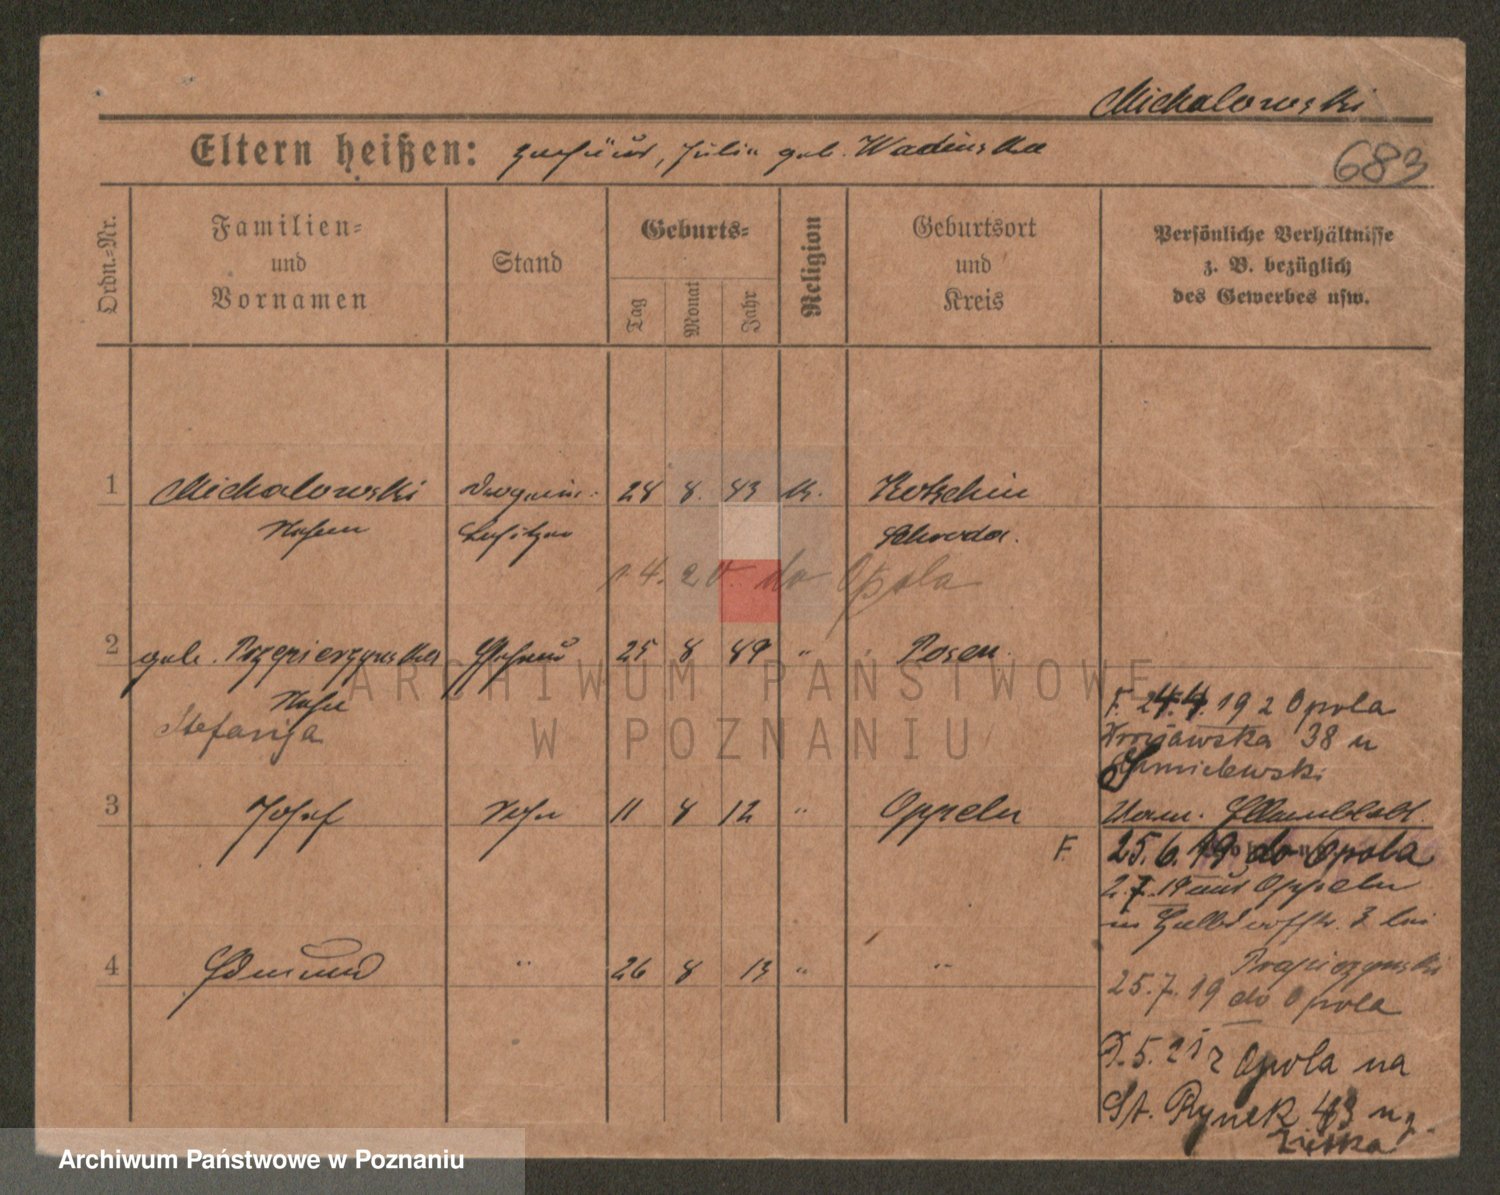 Michalowski
Eltern heißen: Julia geb. Wadinska
683
Ordn.-Nr.
Familien-
und
Vornamen
Stand
Geburts-
Tag
Monat
Jahr
Religion
Geburtsort
und
Kreis
Persönliche Verhältnisse
z. B. bezüglich
des Gewerbes usw.
1 Michalowski 24 8. 83 k. Kotschin
besitzer Schroda.
1.4.20. do Opola
2 geb. Przepierzynska Ehefrau 25 8 89 " Posen
Stefanija
F. 24.4.19 z Opola
38 u
Chmielewski
3 Josef Sohn 11 8 12 " Oppeln
F. 25.6.19 do Opola
2.7.19 aus Oppeln
in 3 bei
4 Edmund " 26 8 13 " "
25.7.19 do Opola
F.5.21 z Opola na
St. Rynek 43 u
ARCHIWUM PAŃSTWOWE
W POZNANIU
Archiwum Państwowe w Poznaniu